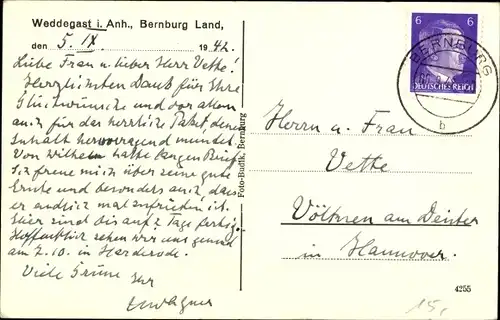 Weddegast i. Anh., Bernburg Land,
den 5. IX. 1942.
Liebe Frau u. lieber Herr Vette!
Herzlichsten Dank für Ihre
Glückwünsche und vor allem
auch für das herrliche Paket, dessen
Inhalt hervorragend mundet.
Von Wilhelm hatte langen Brief
Ich freue mich über seine gute
Ernte und besonders auch, dass
er endlich mal zufrieden ist.
Hier sind bis auf 2 Tage fertig.
Hoffentlich sehen wir uns gesund
am 7.10. in Harderode.
Viele Grüsse Ihr
Foto-Budtk, Bernburg
6 6
DEUTSCHES REICH
BERNBURG
b
Herrn u. Frau
Vette
Völksen am Deister
in Hannover.
4255
15,